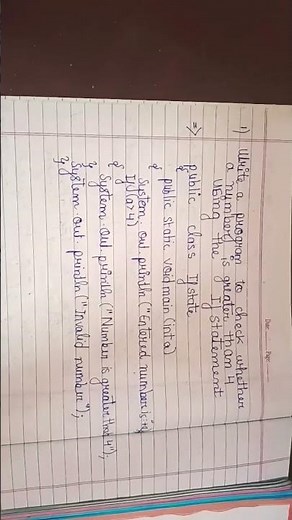 Date Page
1) Write a program to check whether
a number is greater than 4
using the If statement
⇒ public class If state
{
public static void main (int a)
{
System.out.println ("Entered number is:
If (a>4)
{
System.out.println ("Number is greater than 4");
}
System.out.println ("Invalid number");
}